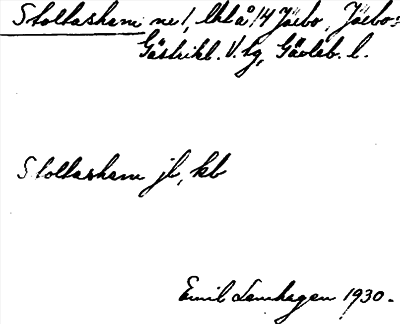 Stollasham ne 1, Åkl å 14 Järbo, Järbo s
Gästrikl. V. tg, Gävleb. l.
Stollasham jb, kb
Emil Lamhagen 1930.